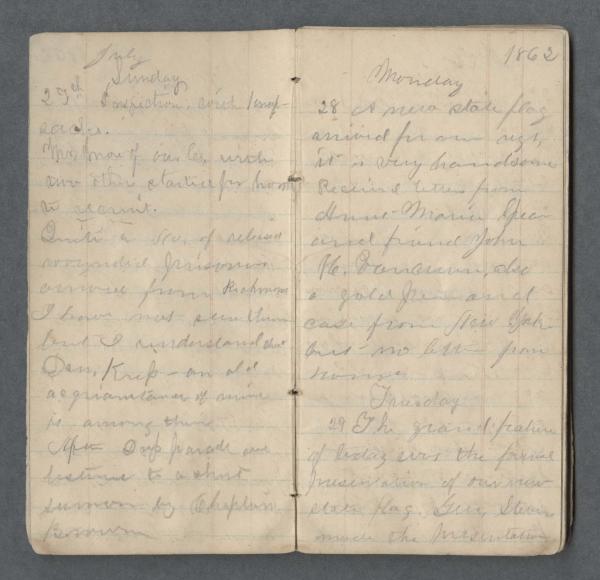 July
Sunday
27th Inspection, with knap-
sacks.
Mr. Snow of our Co. with
two others started for home
to recruit.
Quite a No. of released
wounded prisoners
arrived from Richmond
I have not seen them
but I understand that
Dan, – an old
acquaintance of mine
is among them.
After Dress parade we
listened to a short
sermon by Chaplain
1862
Monday
28 A new state flag
arrived for our regt,
it is very handsome
Received letters from
Marie
and friend John
H. also
a gold pen and
case from New York
but no letter from
home
Tuesday
29 The grand feature
of today was the formal
presentation of our new
state flag. Genl Stevens
made the presentation